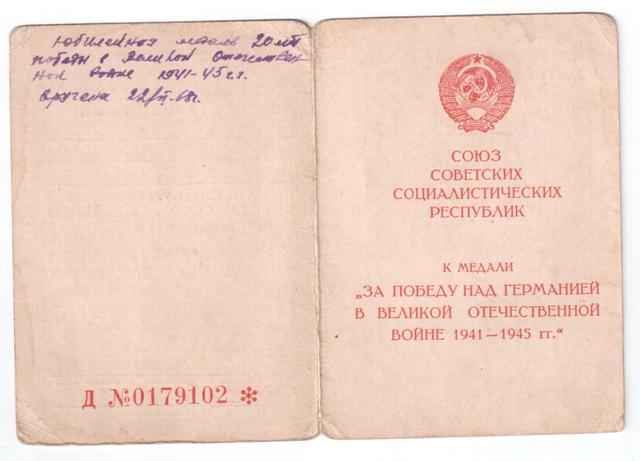 Юбилейная медаль 20 лет
победы в Великой Отечествен
ной войне 1941-45 г.г.
вручена 22/II.68г.
Д №0179102 *
СОЮЗ
СОВЕТСКИХ
СОЦИАЛИСТИЧЕСКИХ
РЕСПУБЛИК
К МЕДАЛИ
„ЗА ПОБЕДУ НАД ГЕРМАНИЕЙ
В ВЕЛИКОЙ ОТЕЧЕСТВЕННОЙ
ВОЙНЕ 1941—1945 гг.“